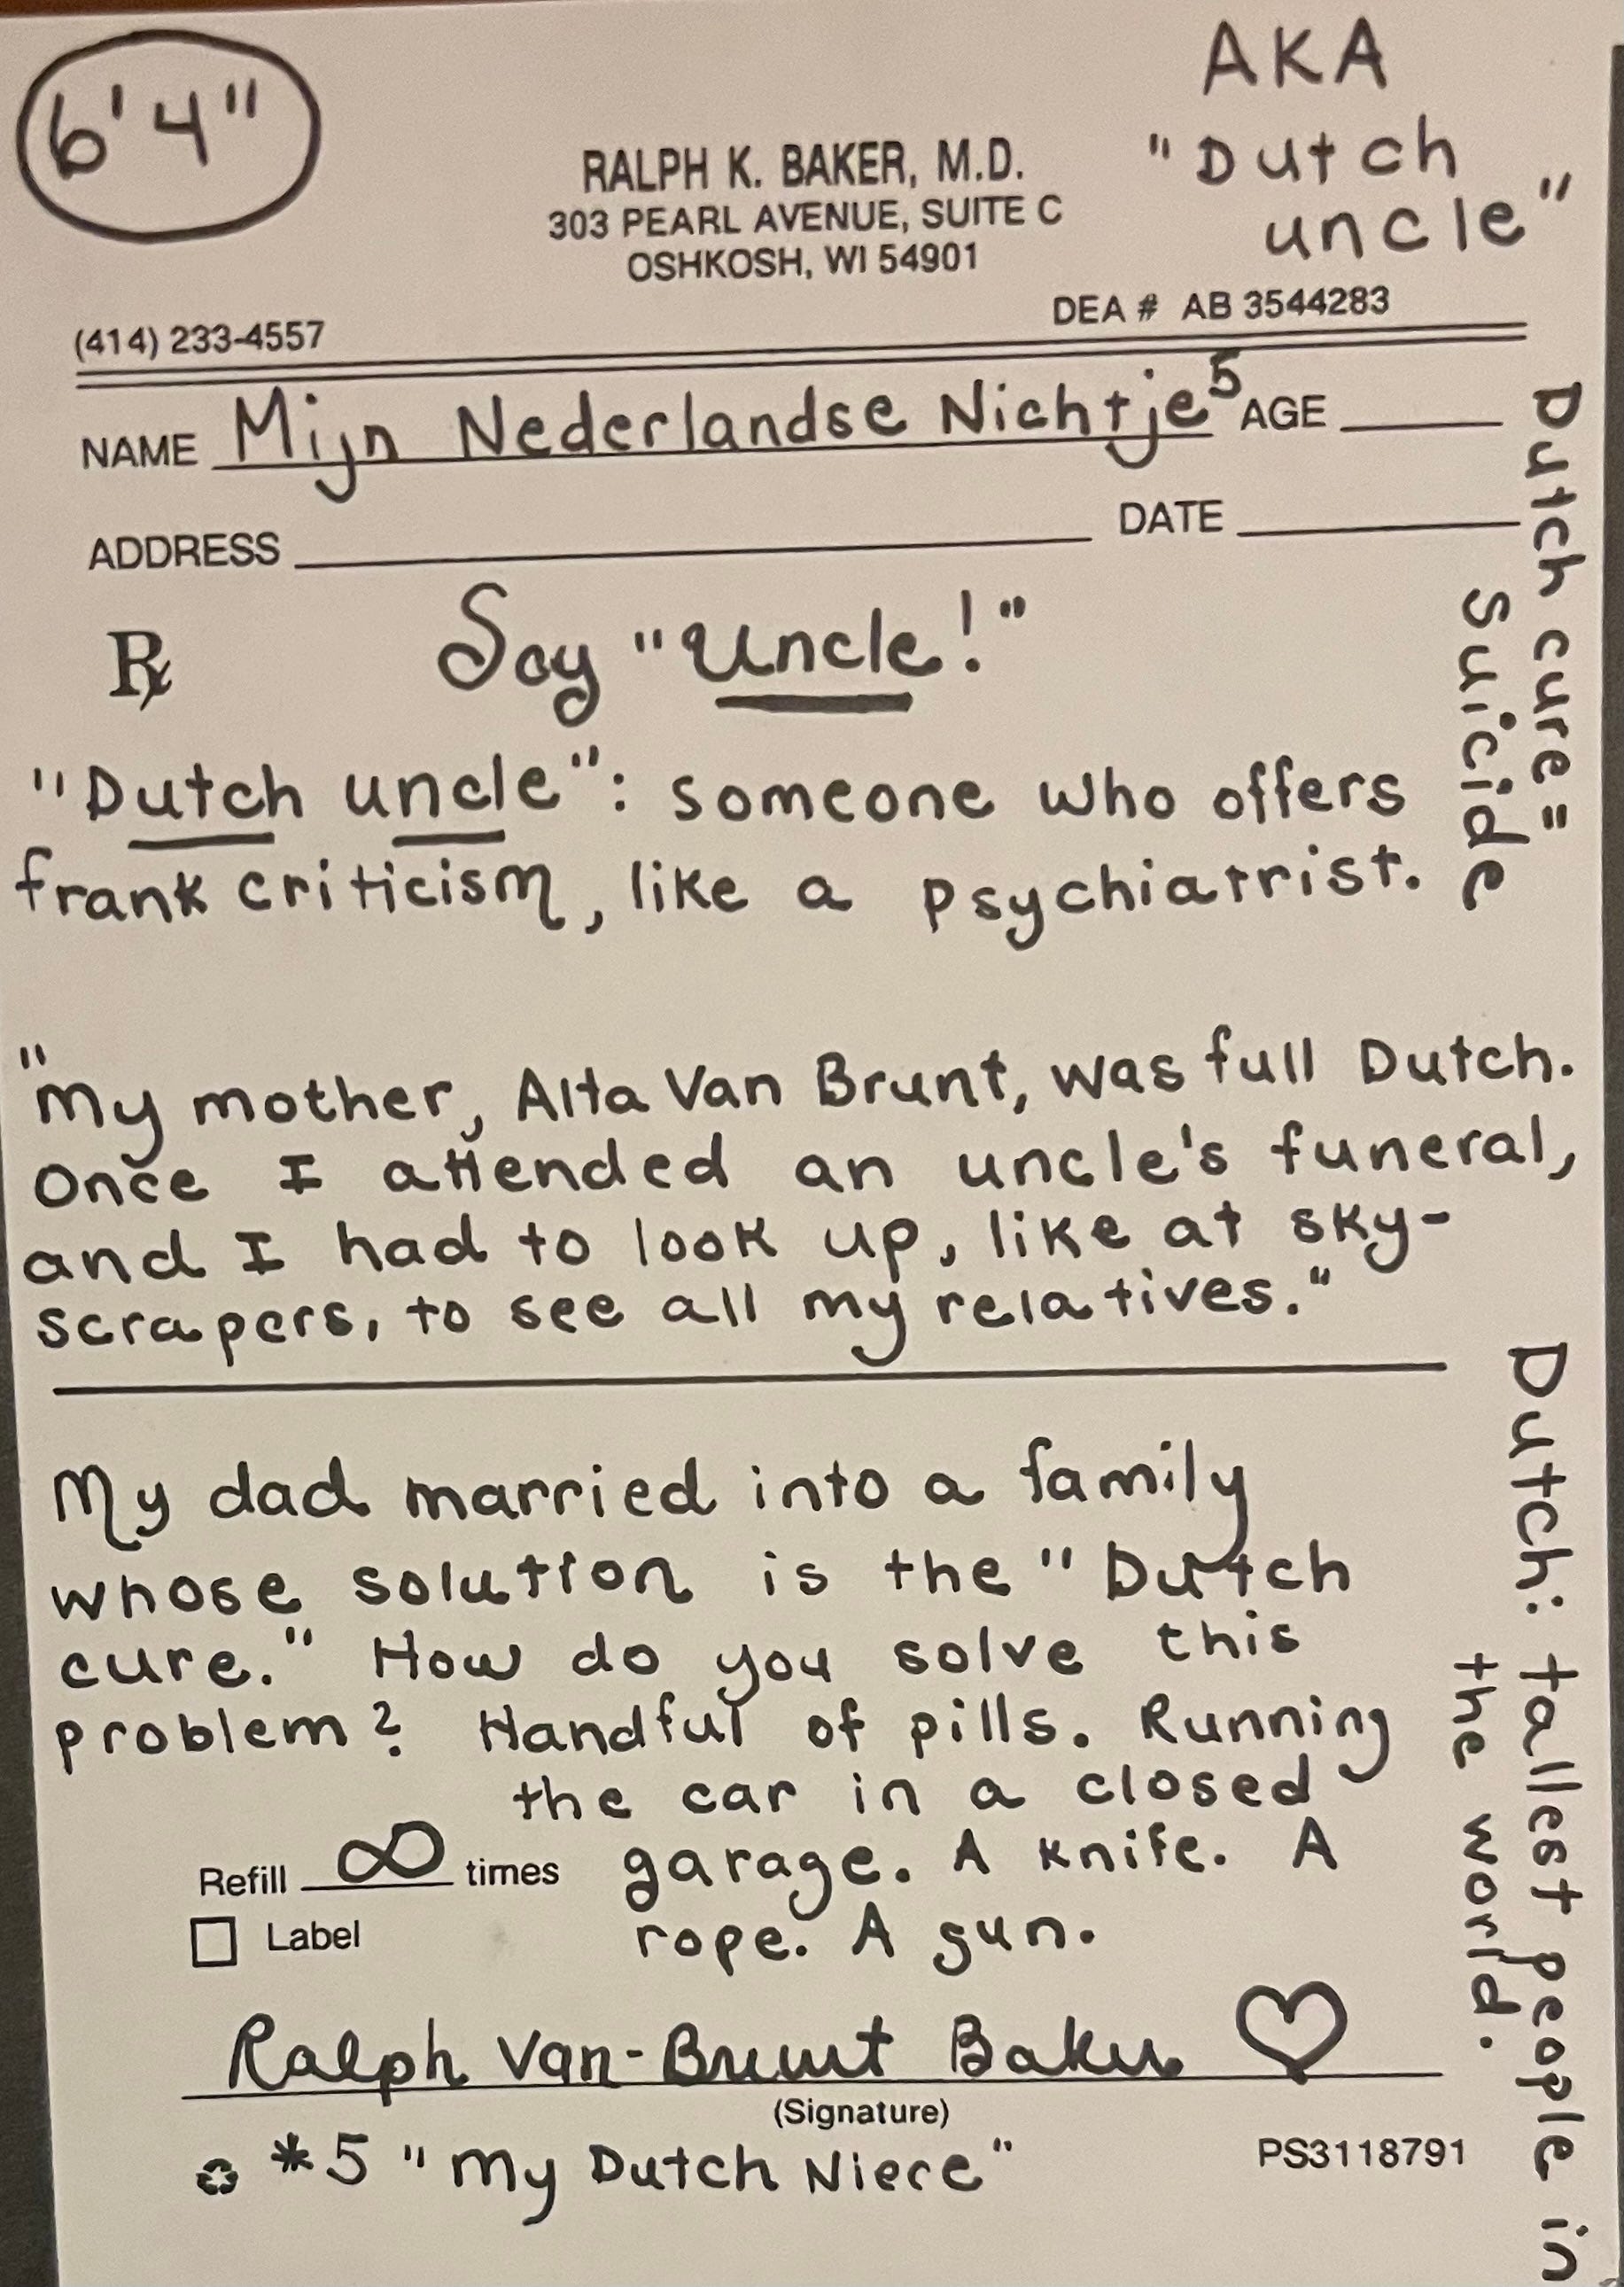 6'4"
AKA
"Dutch
uncle"
RALPH K. BAKER, M.D.
303 PEARL AVENUE, SUITE C
OSHKOSH, WI 54901
DEA # AB 3544283
(414) 233-4557
NAME Mijn Nederlandse Nichtje5 AGE
ADDRESS DATE
Rx Say "Uncle!"
"Dutch cure"=
Suicide
"Dutch uncle": someone who offers
frank criticism, like a psychiatrist.
"My mother, Alta Van Brunt, was full Dutch.
Once I attended an uncle's funeral,
and I had to look up, like at sky-
scrapers, to see all my relatives."
Dutch: tallest people in
the world.
My dad married into a family
whose solution is the "Dutch
cure." How do you solve this
problem? Handful of pills. Running
the car in a closed
Refill ∞ times garage. A knife. A
Label rope. A gun.
Ralph Van-Brunt Baker ♡
(Signature)
*5 "My Dutch Niece"
PS3118791